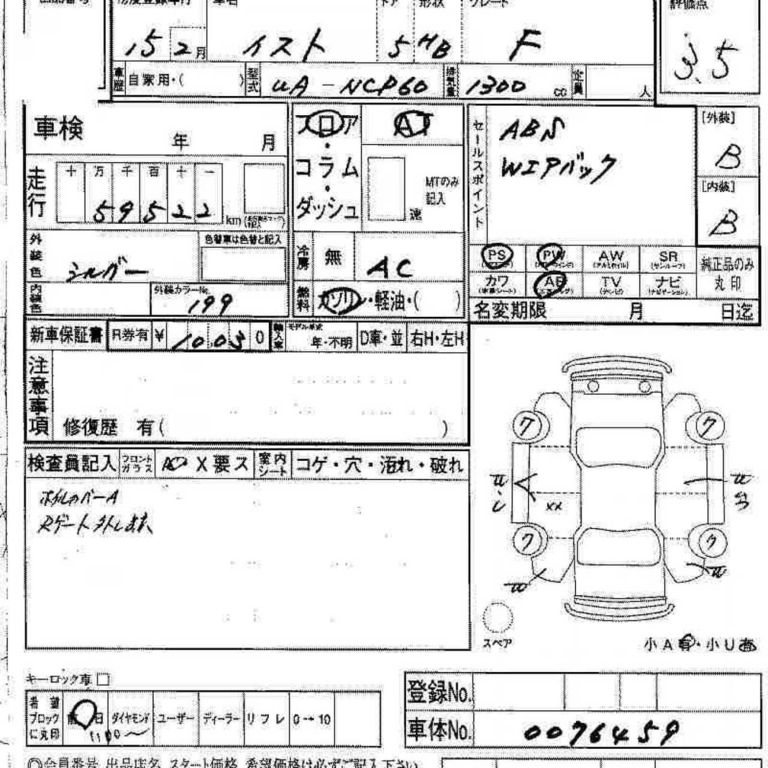 車名 形状 グレード 評価点
15 2月 イスト 5 HB F 3.5
車歴 自家用・( ) 型式 UA-NCP60 排気量 1300 cc 定員 人
車検 年 月
フロア・コラム・ダッシュ AT MTのみ記入 速
セールスポイント ABS
Wエアバック
[外装] B
[内装] B
走行 十 万 千 百 十 一
59522 km
外装色 シルバー 色替車は色替と記入
内装色 外装カラーNo. 199
冷房 無 AC
燃料 ガソリン・軽油・( )
PS PW AW SR 純正品のみ丸印
カワ AB TV ナビ
名変期限 月 日迄
新車保証書 R券有 ¥ 10,030 輸入車 モデル年式 年・不明 D車・並 右H・左H
注意事項 修復歴 有( )
検査員記入 フロントガラス X要ス 室内シート コゲ・穴・汚れ・破れ
Rゲート
ワ ワ
xx
ワ ワ
スペア 小A有・小U有
キーロック車 □
希望ブロックに丸印 前日 ダイヤモンド ユーザー ディーラー リフレ 0→10
1100〜
登録No.
車体No. 0076459
◎会員番号、出品店名、スタート価格、希望価格は必ずご記入下さい